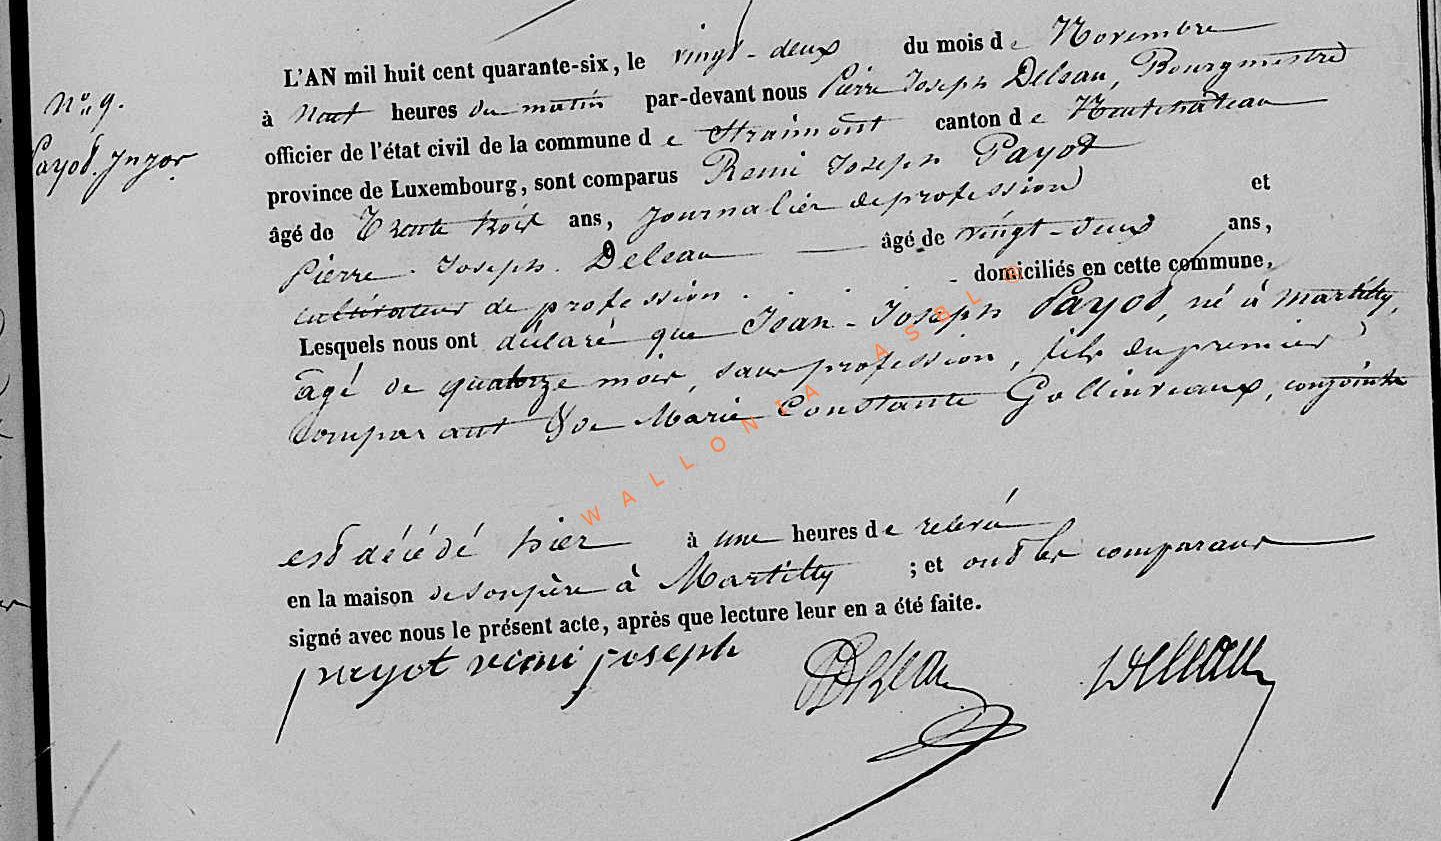 N° 9.
Payot. Jn Jor
L'AN mil huit cent quarante-six, le vingt-deux du mois de Novembre
à Neuf heures du matin par-devant nous Pierre Joseph Deleau, Bourgmestre
officier de l'état civil de la commune de Straimont canton de Neufchâteau
province de Luxembourg, sont comparus Remi Joseph Payot
âgé de Trente trois ans, journalier de profession et
Pierre Joseph Deleau âgé de vingt-deux ans,
cultivateur de profession domiciliés en cette commune,
Lesquels nous ont déclaré que Jean-Joseph Payot, né à Martilly,
âgé de quatorze mois, sans profession, fils du premier
comparant & de Marie Constante Gollinvaux, conjointe
est décédé hier à une heures de relevée
en la maison de son père à Martilly ; et ont les comparans
signé avec nous le présent acte, après que lecture leur en a été faite.
payot remi joseph Deleau Deleau
WALLONIA ASBL ©